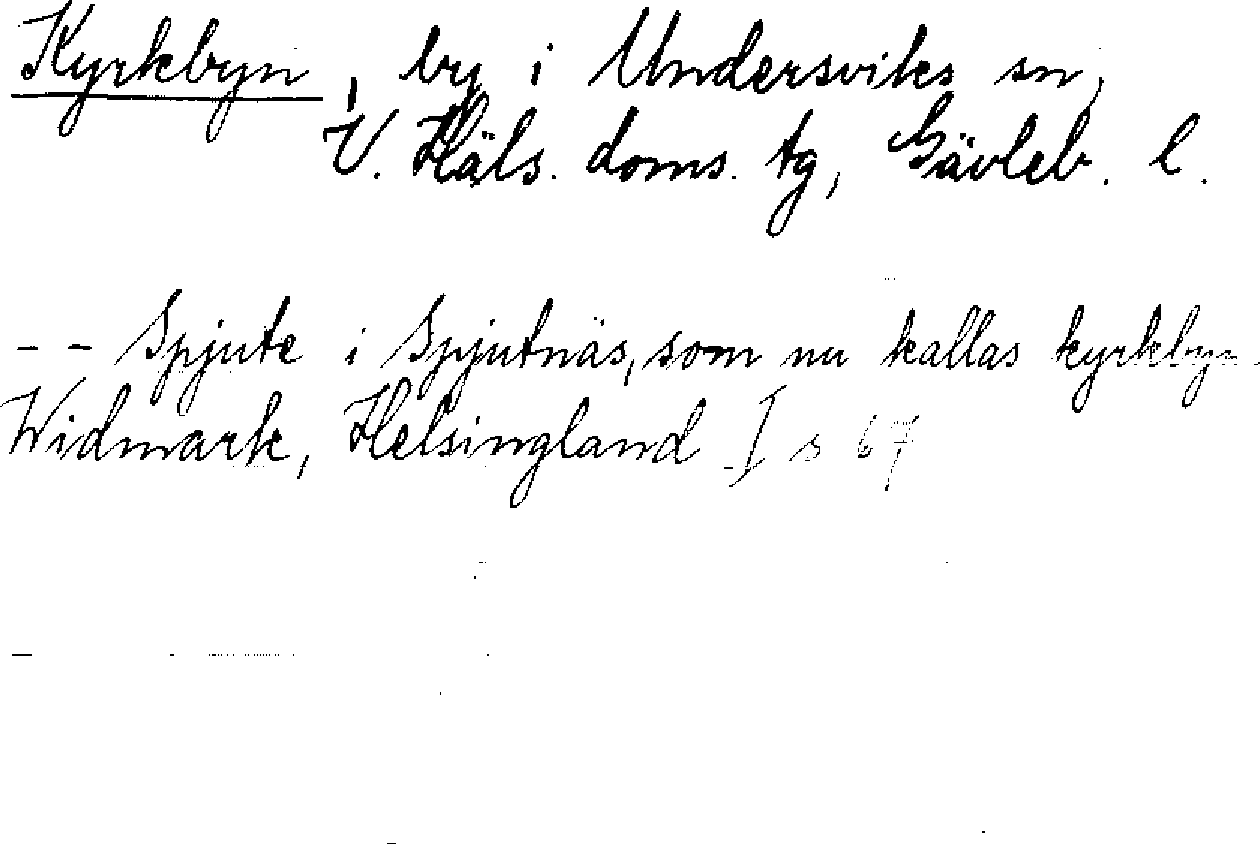 Kyrkbyn, by i Undersviks sn,
V. Häls. doms. tg, Gävleb. l.
- - Spjute i Spjutnäs, som nu kallas kyrkbyn.
Widmark, Helsingland I s 67